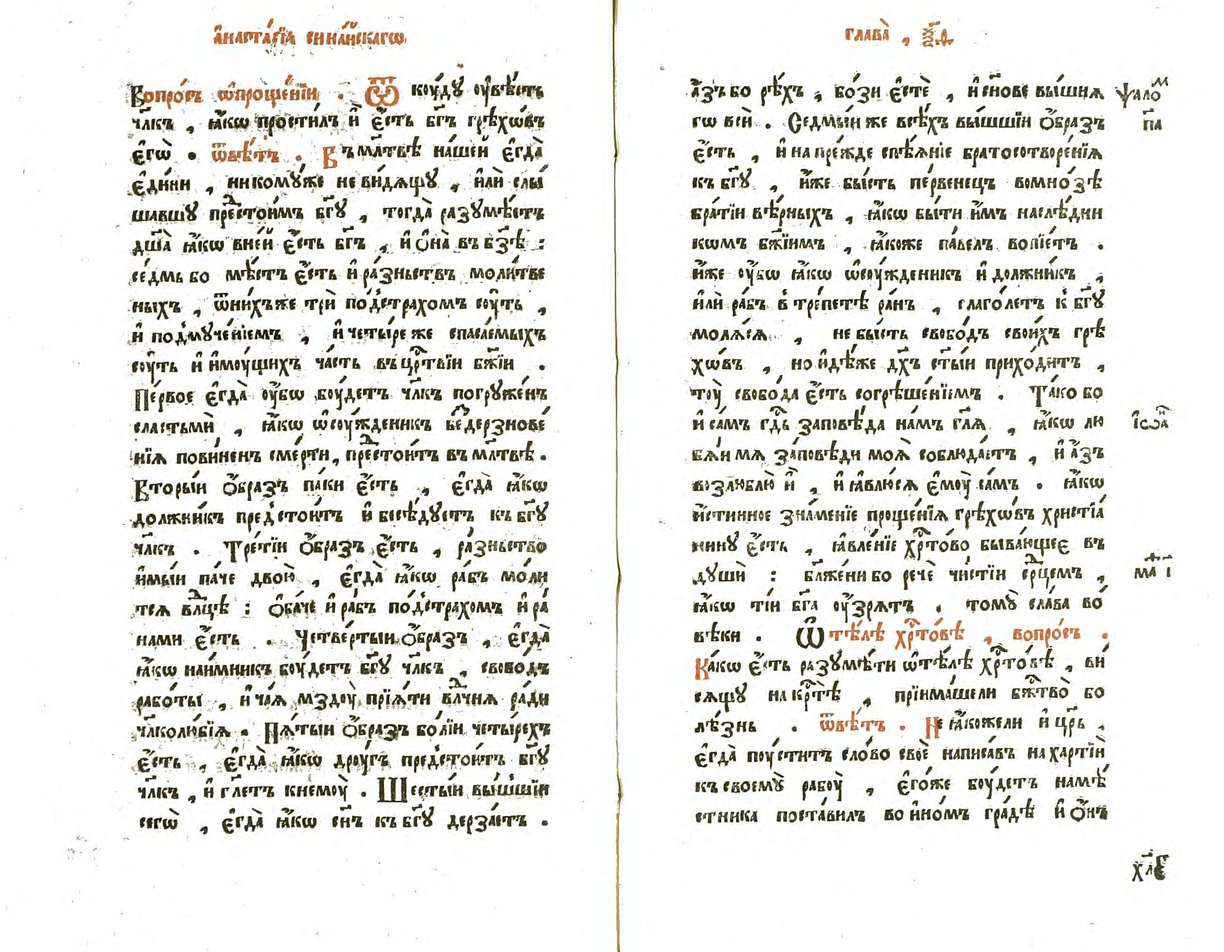 а҆наста́сїѧ сина́йскагѡ
Вопро́съ ѡ҆проще́нїи . Ѿ коу́дꙋ оу҆вѣ́сть
чл҃къ , ꙗ҆́кѡ прости́лъ и҆ є҆́сть бг҃ъ грѣхѡ́въ
є҆гѡ̀ . ѿвѣ́тъ . Въ мл҃твѣ нашей є҆гда̀
є҆ди́ни , никомꙋ́же не ви́дѧщꙋ , и҆лѝ слы́
шавшꙋ предстои́мъ бг҃ꙋ , тогда̀ разꙋмѣ́етъ
дш҃а̀ ꙗ҆́кѡ вне́й є҆́сть бг҃ъ , и҆ ѻ҆на̀ въ бз҃ѣ :
се́дмь бо мѣ́стъ є҆́сть и҆ ра́зньствъ моли́тве
ныхъ , ѿни́хъже трѝ под̾стра́хом соу́ть ,
и҆ под̾мꙋче́нїемъ , и҆ четы́ре же спаса́емыхъ
соу́ть и҆ и҆моу́щихъ ча́сть въ црⷭ҇твїи бж҃їи .
Пе́рвое є҆гда̀ оу҆́бѡ боу́детъ чл҃къ погрꙋже́нъ
сластьмѝ , ꙗ҆́кѡ ѡ҆соу́жденикъ беⷥде́рзнове
нїѧ пови́ненъ сме́рти , предстои́тъ въ мл҃твѣ .
Вторы́и ѻ҆́бразъ па́ки є҆́сть , є҆гда̀ ꙗ҆́кѡ
должни́къ пред̾стои́тъ и҆ бесѣ́дꙋетъ къ бг҃ꙋ
чл҃къ . Тре́тїи ѻ҆́бразъ є҆́сть , ра́зньство
и҆мы́и па́че двою̀ , є҆гда̀ ꙗ҆́кѡ ра́бъ моли
тсѧ влⷣцѣ : ѻ҆ба́че и҆ ра́бъ под̾стра́хомъ и҆ ра́
нами є҆́сть . Четве́ртыи ѻ҆́браз , є҆гда̀
ꙗ҆́кѡ наи́мникъ боу́детъ бг҃ꙋ чл҃къ , свобо́дъ
рабо́ты , и҆ ча́ѧ мздоу̀ прїѧ́ти влⷣчнѧ ра́ди
чл҃колю́бїѧ . Пѧ́тыи ѻ҆́бразъ бо́лїи четы́рехъ
є҆́сть , є҆гда̀ ꙗ҆́кѡ дроу́гъ пред̾стои́тъ бг҃ꙋ
чл҃къ , и҆ гл҃етъ кнемоу̀ . Шесты́и вы́шшїи
сегѡ̀ , є҆гда̀ ꙗ҆́кѡ сн҃ъ къ бг҃ꙋ дерза́етъ .
глава̀ ,
а҆́зъ бо рѣ́хъ , бо́зи є҆стѐ , и҆ сы́нове вы́шнѧ
гѡ всѝ . Седмы́и же всѣ́хъ вы́шшїи ѻ҆́бразъ
є҆́сть , и҆ на пре́жде спѣѧ́нїе братосотворе́нїѧ
къ бг҃ꙋ , и҆́же бы́сть пе́рвенецъ вомно́зѣ
бра́тїи вѣ́рныхъ , ꙗ҆́кѡ бы́ти и҆̀мъ наслѣ́дни
кѡмъ бж҃їимъ , ꙗ҆́коже па́велъ вопїе́тъ .
и҆́же оу҆́бѡ ꙗ҆́кѡ ѡ҆соу́жденикъ и҆ должни́къ ,
и҆лѝ ра́бъ в̾ тре́петѣ ра́нъ , глаго́летъ к̾ бг҃ꙋ
молѧ́сѧ , не бы́сть свобо́дъ свои́хъ грѣ
хѡ́въ , но и҆дѣ́же дх҃ъ ст҃ы́и прихо́дитъ ,
тоу̀ свобо́да є҆́сть согрѣше́нїемъ . Та́ко бо
и҆ са́мъ гдⷭ҇ь заповѣ́да на́мъ гл҃ѧ , ꙗ҆́кѡ лю
бѧ́и мѧ̀ за́повѣди моѧ̀ соблюда́етъ , и҆ а҆́зъ
возлюблю̀ и҆̀ , и҆ ꙗ҆влю́сѧ є҆моу̀ са́мъ . ꙗ҆́кѡ
и҆́стинное зна́менїе проще́нїѧ грѣхѡ́въ христїа́
нинꙋ є҆́сть , ꙗ҆вле́нїе хрⷭ҇то́во быва́ющеє въ
дꙋшѝ : бл҃же́ни бо речѐ чи́стїи срⷣцемъ ,
ꙗ҆́кѡ ті́и бг҃а оу҆́зрѧтъ . томꙋ̀ сла́ва во́
вѣки . Ѡ҆ тѣ́лѣ хрⷭ҇то́вѣ , вопро́съ .
Ка́кѡ є҆́сть разꙋмѣ́ти ѡ҆ тѣ́лѣ хрⷭ҇то́вѣ , ви
сѧ́щꙋ на крⷭ҇тѣ̀ , прїима́шели бжⷭ҇тво̀ бо
лѣ́знь . ѿвѣ́тъ . Не ꙗ҆́кожели и҆ цр҃ь ,
є҆гда̀ поꙋ́ститъ сло́во своѐ написа́въ на харті́и
къ своемꙋ̀ рабоу̀ , є҆го́же боу́детъ намѣ́
стника поста́вилъ во и҆но́мъ гра́дѣ и҆ ѻ҆́нъ
ѱало́ⷨ
па
і҆ѡа
маⷴ і
хл҃є